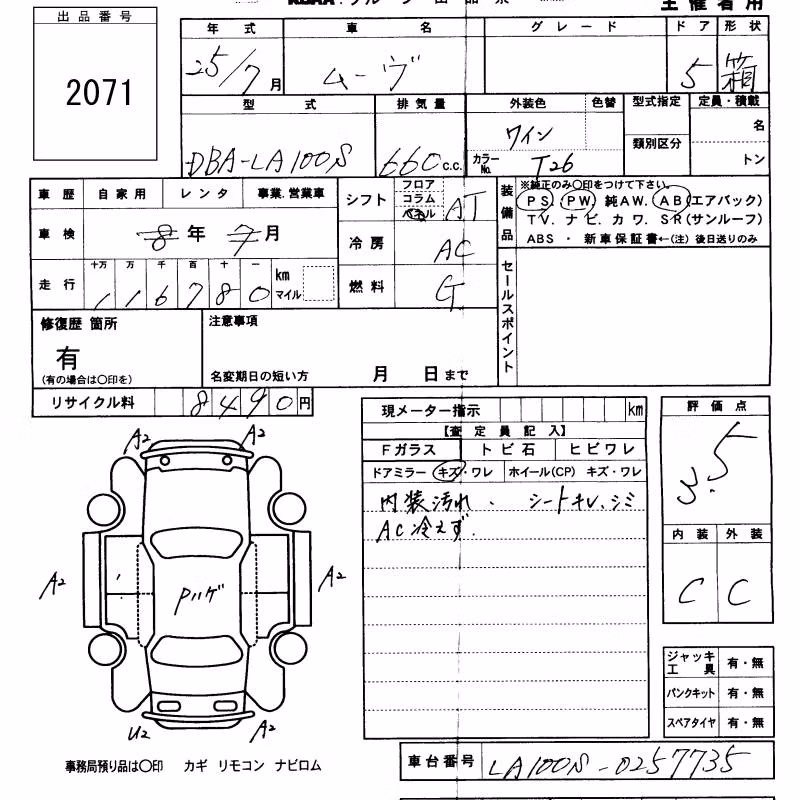 主催者用
出品番号
2071
年式 車名 グレード ドア 形状
25/7月 ムーヴ 5 箱
型式 排気量 外装色 色替 型式指定 定員・積載
ワイン 名
類別区分
DBA-LA100S 660c.c. カラーNo. T26 トン
車歴 自家用 レンタ 事業.営業車 シフト フロア コラム パネル AT
装備品 ※純正のみ○印をつけて下さい。
PS. PW. 純AW. AB(エアバック)
TV. ナビ. カワ. SR(サンルーフ)
ABS ・ 新車保証書←(注) 後日送りのみ
車検 8年7月 冷房 AC
走行 十万 万 千 百 十 一 km マイル
116780
燃料 G
セールスポイント
修復歴 箇所 注意事項
有
(有の場合は○印を) 名変期日の短い方 月 日まで
リサイクル料 8490円
現メーター指示 km
評価点
3.5
【査定員記入】
Fガラス トビ石 ヒビワレ
ドアミラー キズ・ワレ ホイール(CP) キズ・ワレ
内装汚れ. シートキレ.シミ
AC冷えず.
内装 外装
C C
A2 A2
A2 Pハゲ A2
U2 A2
ジャッキ工具 有・無
パンクキット 有・無
スペアタイヤ 有・無
事務局預り品は○印 カギ リモコン ナビロム
車台番号 LA100S-0257735